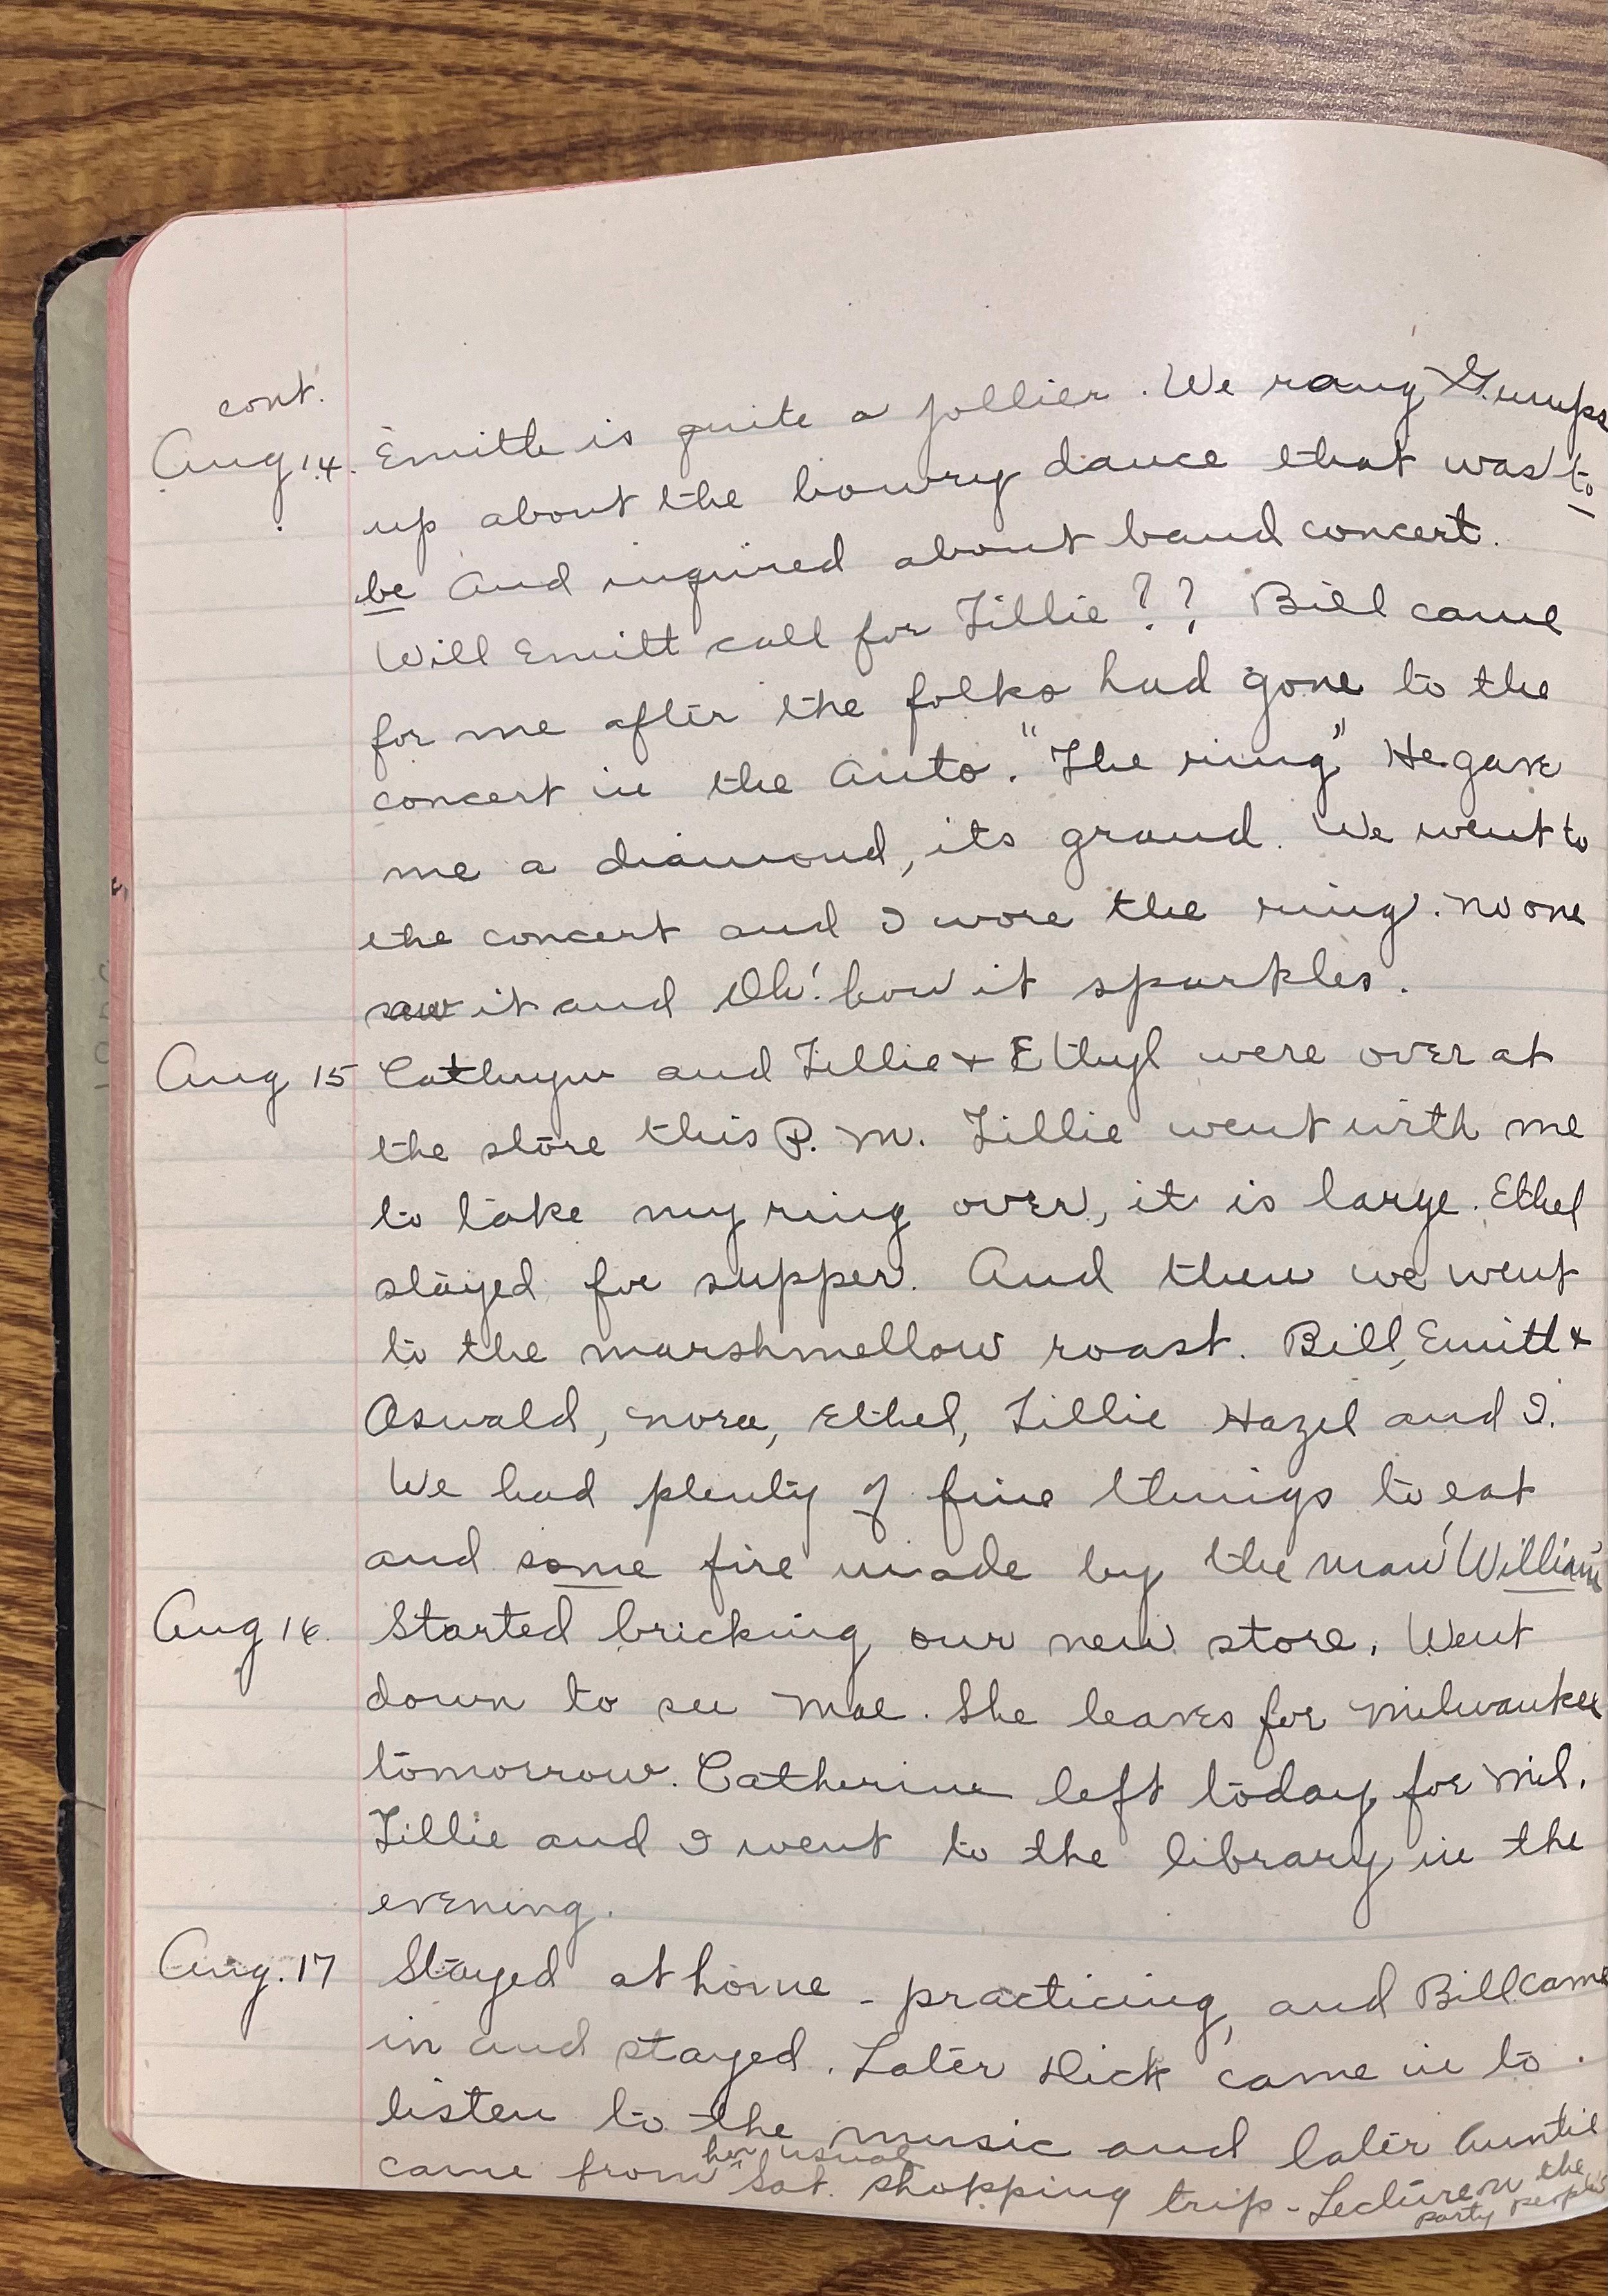 cont.
Aug 14. Emitt is quite a jollier. We rang Gumps
up about the bowry dance that was to
be and inquired about band concert.
Will Emitt call for Tillie?? Bill came
for me after the folks had gone to the
concert in the auto. "The ring" He gave
me a diamond, its grand. We went to
the concert and I wore the ring. No one
saw it and Oh! how it sparkles.
Aug 15 Cathryn and Tillie + Ethyl were over at
the store this P. M. Tillie went with me
to take my ring over, it is large. Ethel
stayed for supper. And then we went
to the marshmellow roast. Bill, Emitt +
Oswald, Nora, Ethel, Tillie Hazel and I.
We had plenty of fine things to eat
and some fire made by the man 'William'
Aug 16. Started bricking our new store. Went
down to see Mae. She leaves for Milwaukee
tomorrow. Catherine left today for Mil.
Tillie and I went to the library in the
evening.
Aug. 17 Stayed at home - practicing, and Bill came
in and stayed. Later Dick came in to
listen to the music and later Auntie
came from her usual Sat. shopping trip - Lecture on the
party people